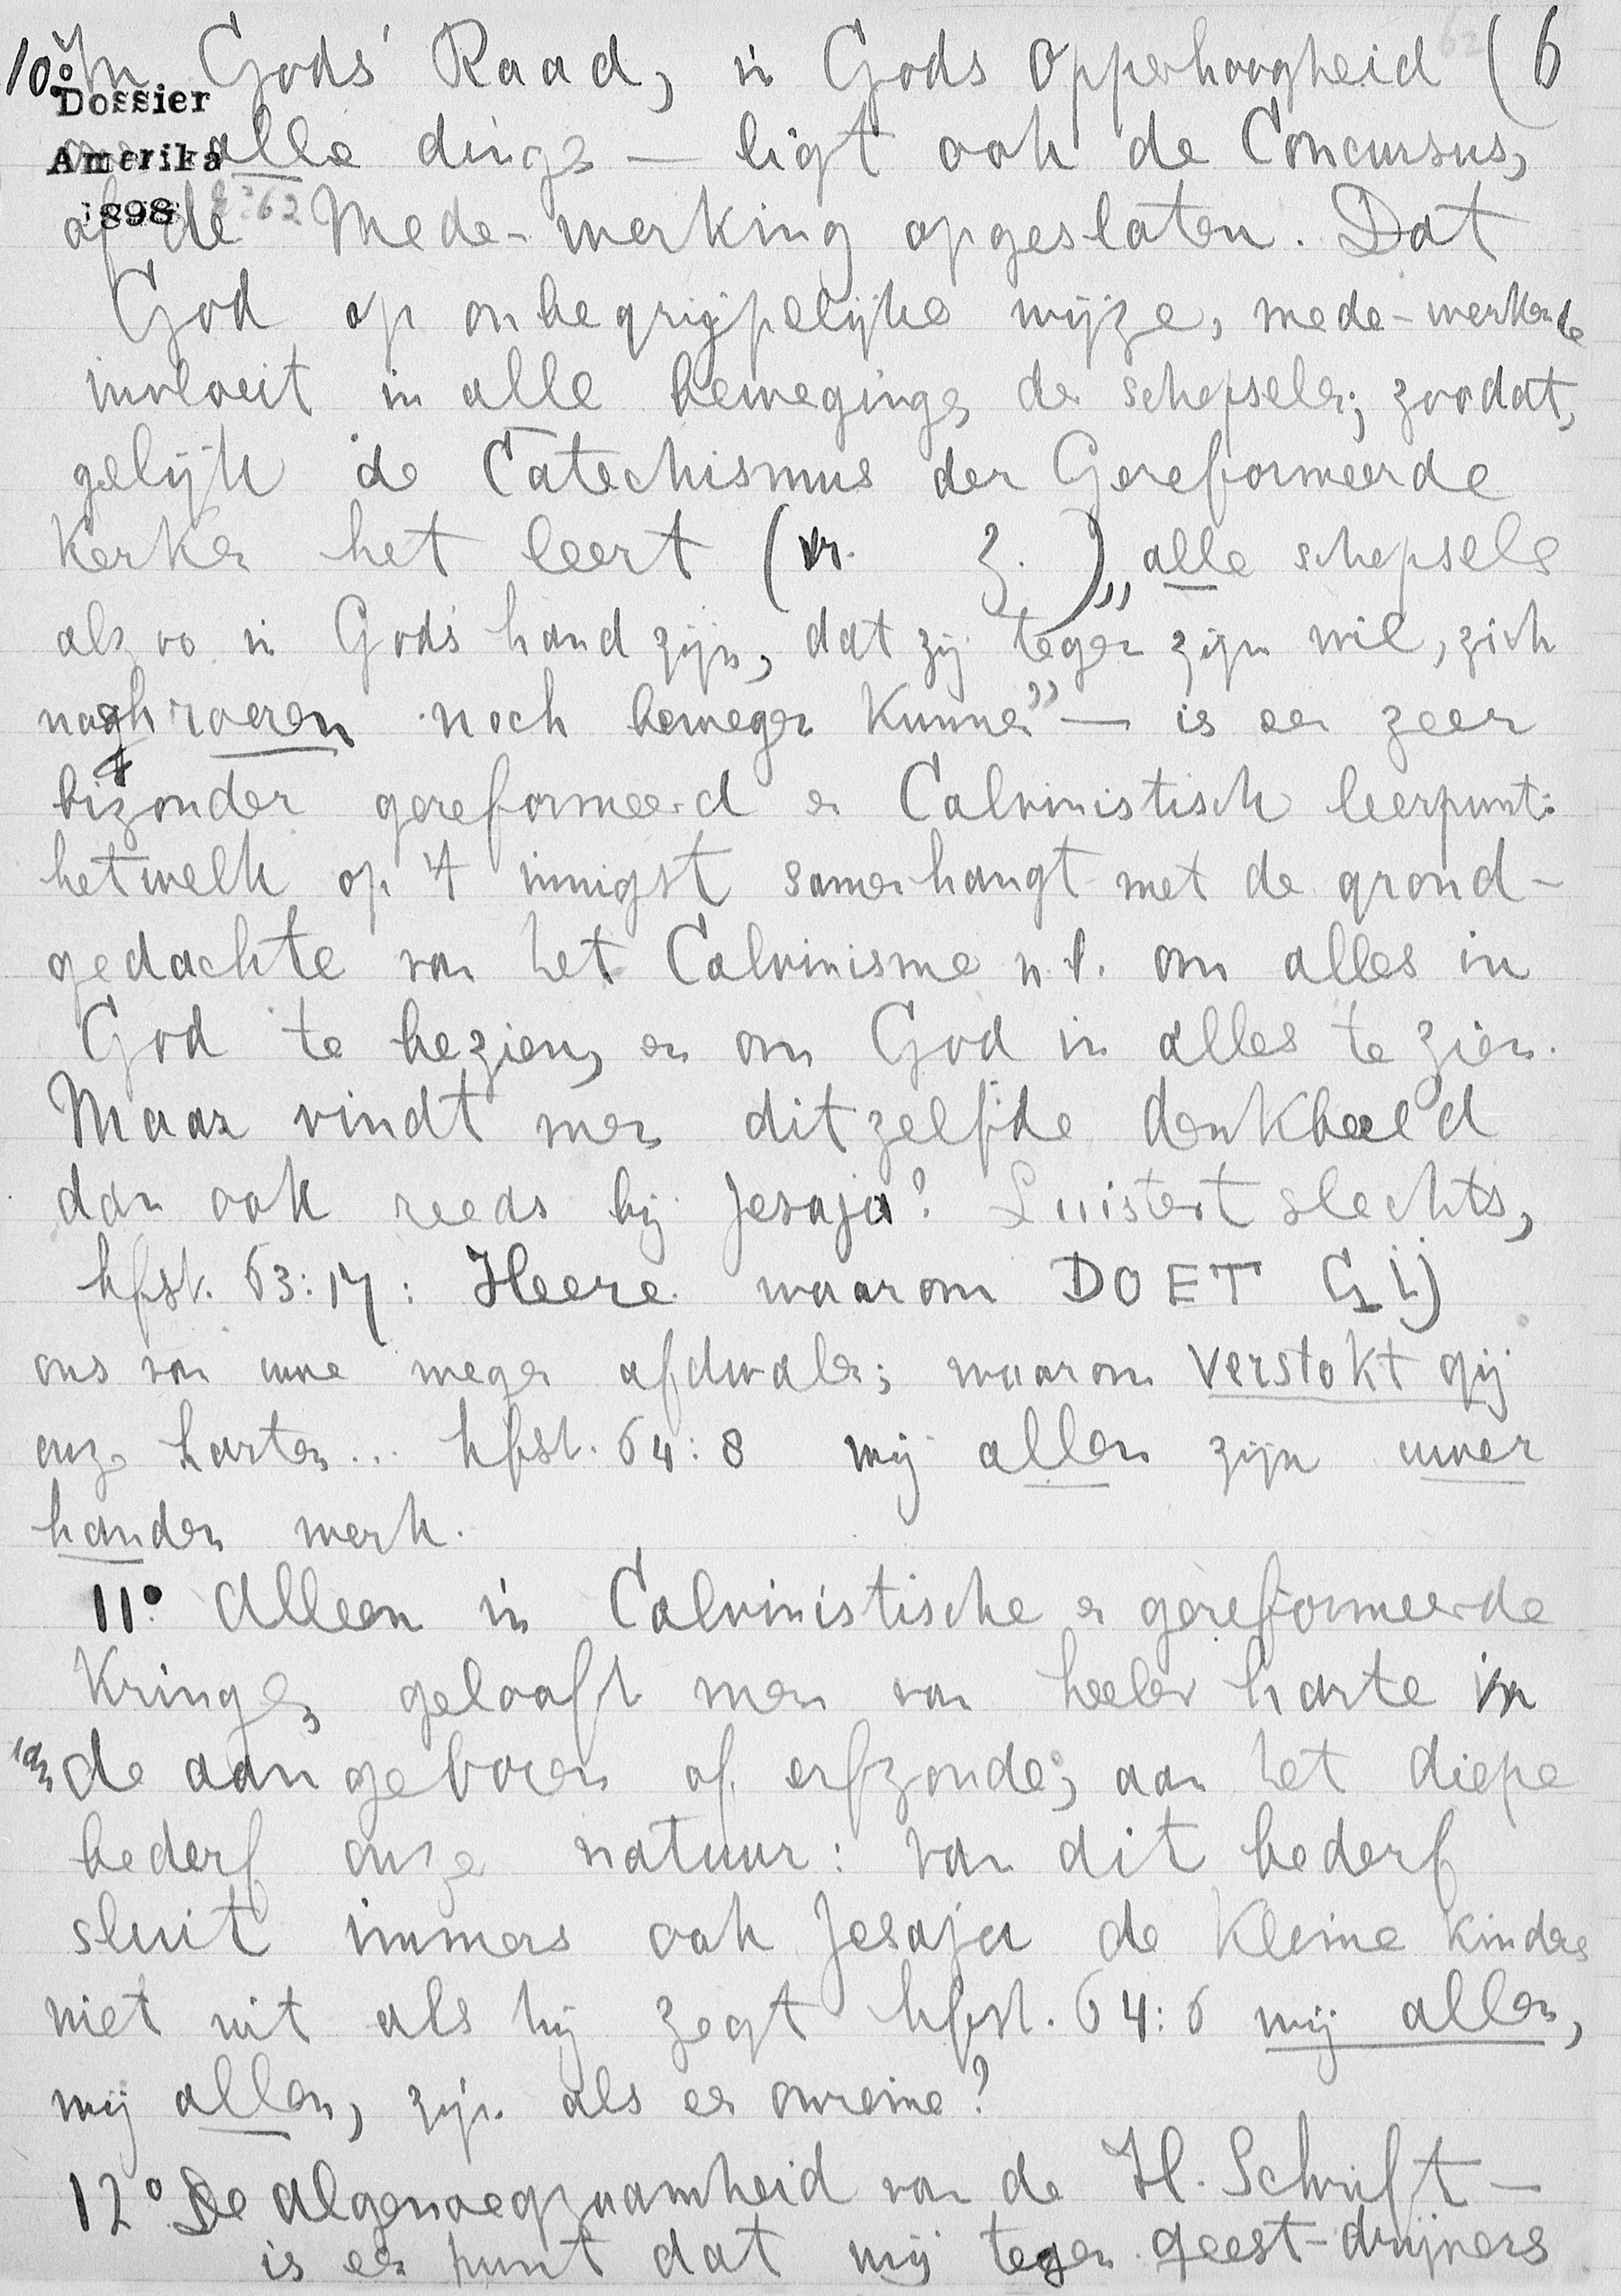 10° In Gods' Raad, in Gods Opperhoogheid (6
Dossier
over alle dinge — ligt ook de Concursus,
Amerika
1898 N° 62
of de Mede-werking opgesloten. Dat
God op onbegrijpelijke wijze, mede-werkende
invloeit in alle bewegingen der schepselen; zoodat,
gelijk de Catechismus der Gereformeerde
Kerken het leert (vr. z. ) „alle schepsels
alzoo in Gods hand zijn, dat zij tegen zijn wil, zich
noch roeren noch bewegen kunnen" — is een zeer
bizonder gereformeerd en Calvinistisch leerpunt:
hetwelk op 't innigst samenhangt met de grond-
gedachte van het Calvinisme n.l. om alles in
God te bezien, en om God in alles te zien.
Maar vindt men ditzelfde denkbeeld
dan ook reeds bij Jesaja? Luistert slechts,
hfst. 63:17: Heere waarom DOET GIJ
ons van uwe wegen afdwalen; waarom verstokt gij
onze harten... hfst. 64:8 wij allen zijn uwer
handen werk.
11° Alleen in Calvinistische en gereformeerde
Kringen gelooft men van heeler harte in
aan de aangeboren of erfzonde; aan het diepe
bederf onze natuur: van dit bederf
sluit immers ook Jesaja de kleine kinders
niet uit als hij zegt hfst. 64:6 wij allen,
wij allen, zijn als een onreine?
12° De algenoegzaamheid van de H. Schrift —
is een punt dat wij tegen geest-drijvers